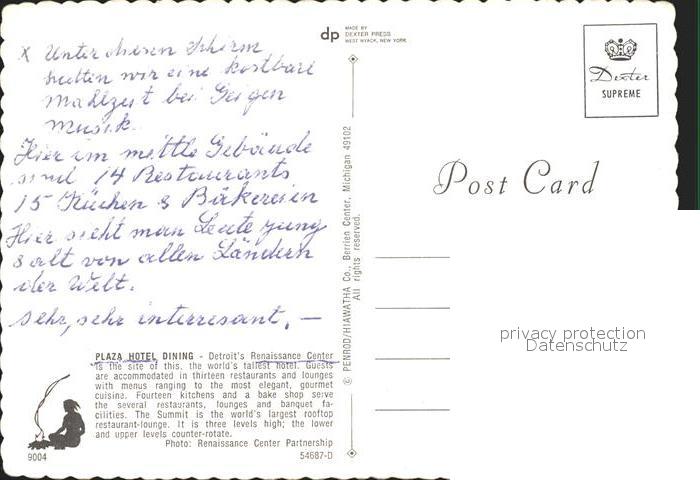 dp MADE BY
DEXTER PRESS
WEST NYACK, NEW YORK
Dexter
SUPREME
x Unter diesen Schirm
hielten wir eine kostbare
Mahlzeit bei Geigen
musik.
Hier im mittle Gebäude
sind 14 Restaurants
15 Küchen & Bäkereien
Hier sieht man Leute jung
& alt von allen Ländern
der Welt.
sehr, sehr interresant, —
Post Card
© PENROD/HIAWATHA Co., Berrien Center, Michigan 49102
All rights reserved.
PLAZA HOTEL DINING - Detroit's Renaissance Center
is the site of this, the world's tallest hotel. Guests
are accommodated in thirteen restaurants and lounges
with menus ranging to the most elegant, gourmet
cuisine. Fourteen kitchens and a bake shop serve
the several restaurants, lounges and banquet fa-
cilities. The Summit is the world's largest rooftop
restaurant-lounge. It is three levels high; the lower
and upper levels counter-rotate.
Photo: Renaissance Center Partnership
9004
54687-D
privacy protection
Datenschutz